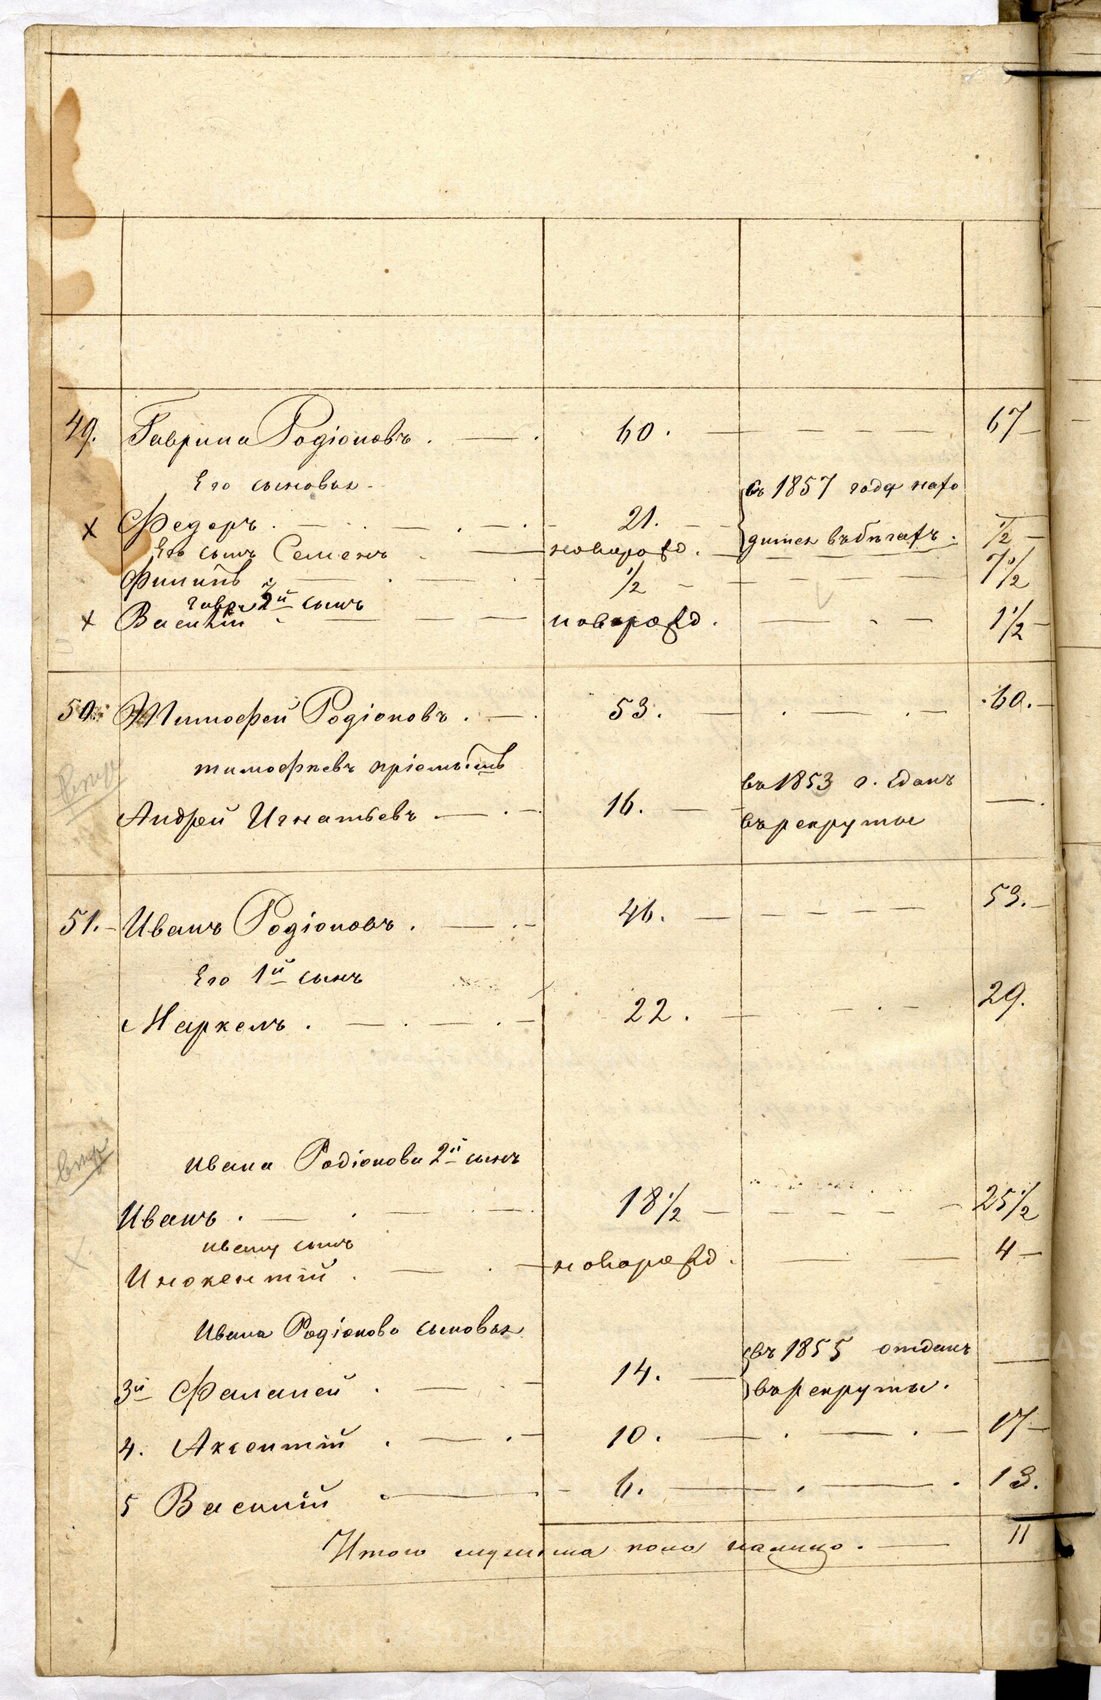 49. Гаврила Родіоновъ. 60. 67
Его сыновья
въ 1857 года нахо
х Федоръ. 21.
дится въ бѣгахъ.
Его сынъ Семенъ новорожд. 1/2
Филипъ 1/2 7 1/2
2й сынъ
х Василій новорожд. 1 1/2
50. Тимофей Родіоновъ. 53. 60.
тимофѣевъ пріемышъ
въ 1853 г. сданъ
Андрей Игнатьевъ 16.
въ рекруты
51. Иванъ Родіоновъ. 46. 53.
Его 1й сынъ
Маркелъ. 22. 29.
Ивана Родіонова 2й сынъ
Иванъ. 18 1/2 25 1/2
сынъ
Инокентій. новорожд. 4
Ивана Родіонова сыновья
въ 1855 отданъ
3й Фалалей. 14.
въ рекруты.
4. Аксентій. 10. 17
5 Василій 6. 13.
Итого мужеска пола налицо. 11